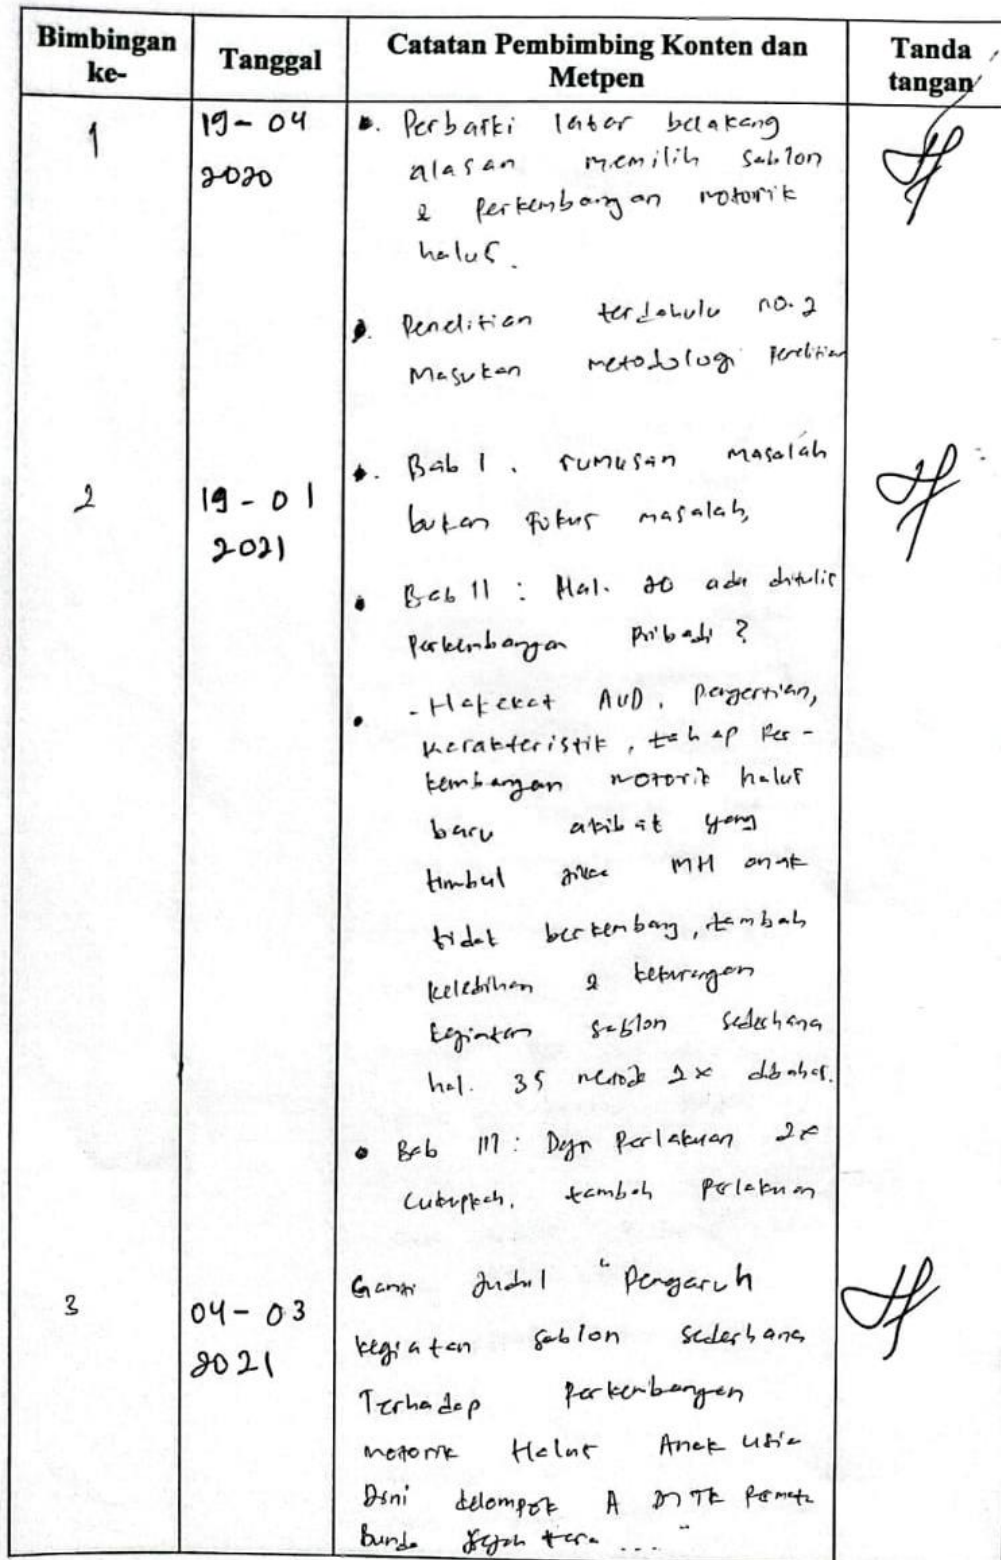 Bimbingan ke-
Tanggal
Catatan Pembimbing Konten dan Metpen
Tanda tangan
1
19-04
2020
Perbaiki latar belakang
alasan memilih sablon
& Perkembangan motorik
halus.
Penelitian terdahulu no. 2
Masukan metodologi Penelitian
2
19-01
2021
Bab I. rumusan masalah
bukan Fokus masalah,
Bab II : Hal. 20 ada ditulis
Perkembangan Pribadi ?
- Hakekat AUD, pengertian,
karakteristik, tahap Per-
kembangan motorik halus
baru akibat yang
timbul jika MH anak
tidak berkembang, tambah
kelebihan & kekurangan
kegiatan sablon sederhana
hal. 35 metode 2x dibahas.
Bab III : Dgn Perlakuan 2x
Cukupkah, tambah Perlakuan
3
04-03
2021
Ganti Judul "Pengaruh
kegiatan sablon sederhana
Terhadap Perkembangan
motorik Halus Anak Usia
Dini kelompok A Di TK Permata
Bunda ...